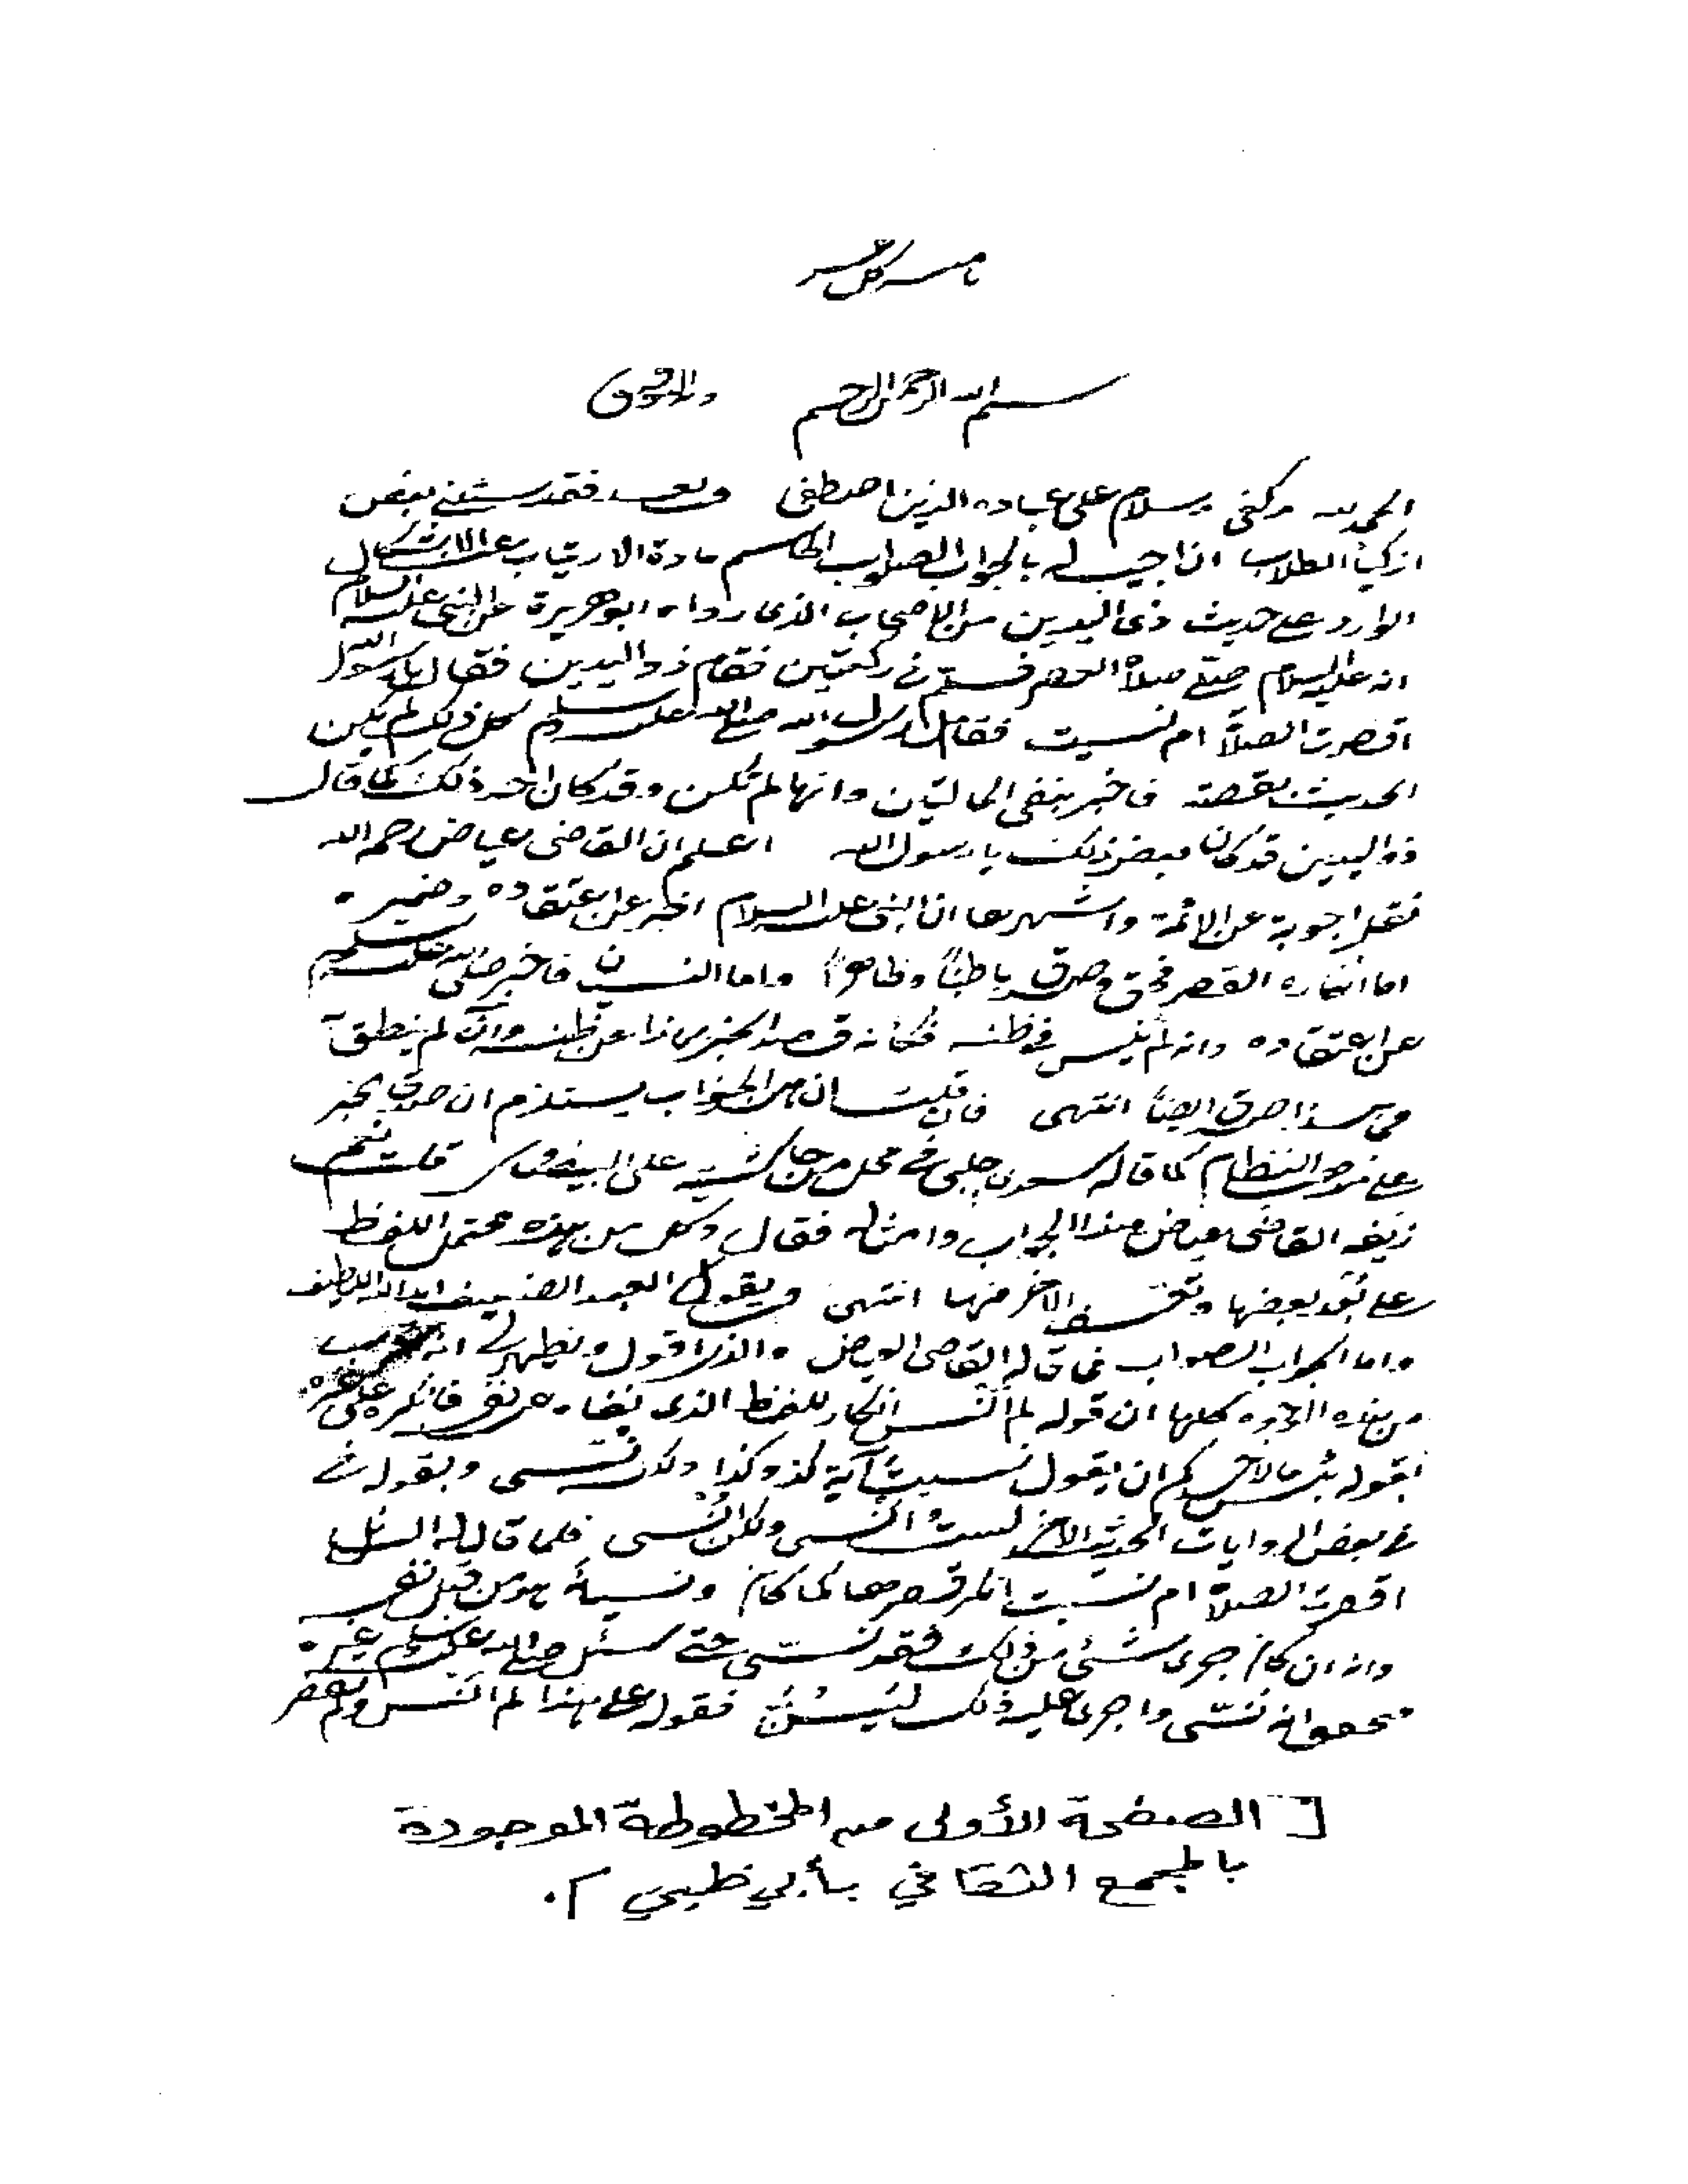 يا ميسر كل عسير
بسم الله الرحمن الرحيم وبه التوفيق
الحمد لله وكفى وسلام على عباده الذين اصطفى وبعد فقد سئلنى بعض
ازكياء الطلاب ان اجيب له بالجواب الصواب الحاسم مادة الارتياب عن الاشكال
الوارد على حديث ذى اليدين من الاصحاب الذى رواه ابو هريرة عن النبى عليه السلام
انه عليه السلام صلى صلاة العصر فسلم فى ركعتين فقام ذو اليدين فقال يا رسول الله
اقصرت الصلاة ام نسيت فقال رسول الله صلى الله عليه وسلم كل ذلك لم يكن
الحديث بقصته فاخبر بنفى الحالتين وانها لم تكن وقد كان احد ذلك كما قال
ذو اليدين قد كان بعض ذلك يا رسول الله اعلم ان القاضى عياض رحمه الله
نقل اجوبة عن الائمة واشهرها ان النبى عليه السلام اخبر عن اعتقاده وضميره
اما انكاره القصر فحق وصدق باطنا وظاهرا واما النسيان فاخبر صلى الله عليه وسلم
عن اعتقاده وانه لم ينس فى ظنه فكانه قصد الخبر بهذا عن ظنه وان لم ينطق به
وهذا صدق ايضا انتهى فان قلت ان هذا الجواب يستلزم ان صدق الخبر
على مذهب النظام كما قاله سعدى چلبى فى محل من حاشيته على البيضاوى قلت نعم
زيفه القاضى عياض هذا الجواب وامثاله فقال وكل من هذه محتمل اللفظ
على بعد بعضها وتعسف الاخر منها انتهى ويقول العبد الضعيف ايده الله اللطيف
واما الجواب الصواب فما قاله القاضى العياض والذى اقول ويظهر لى انه اقرب
من هذه الوجوه كلها ان قوله لم انس انكار للفظ الذى نفاه عن نفسه فانكره على غيره
بقوله بئس ما لاحدكم ان يقول نسيت آية كذا وكذا ولكن نسى وبقوله فى
فى بعض الروايات الحديث الاخر لست انسى ولكن انسى فلما قال له السائل
اقصرت الصلاة ام نسيت انكر قصرها كما كان ونسيانه هو من قبل نفسه
وانه ان كان جرى شئ من ذلك فقد نسى حتى سئل صلى الله عليه وسلم غيره
فتحقق انه نسى واجرى عليه ذلك ليسن فقوله على هذا لم انس ولم تقصر
[ الصفحة الأولى من المخطوطة الموجودة
بالمجمع الثقافي بأبي ظبي ].